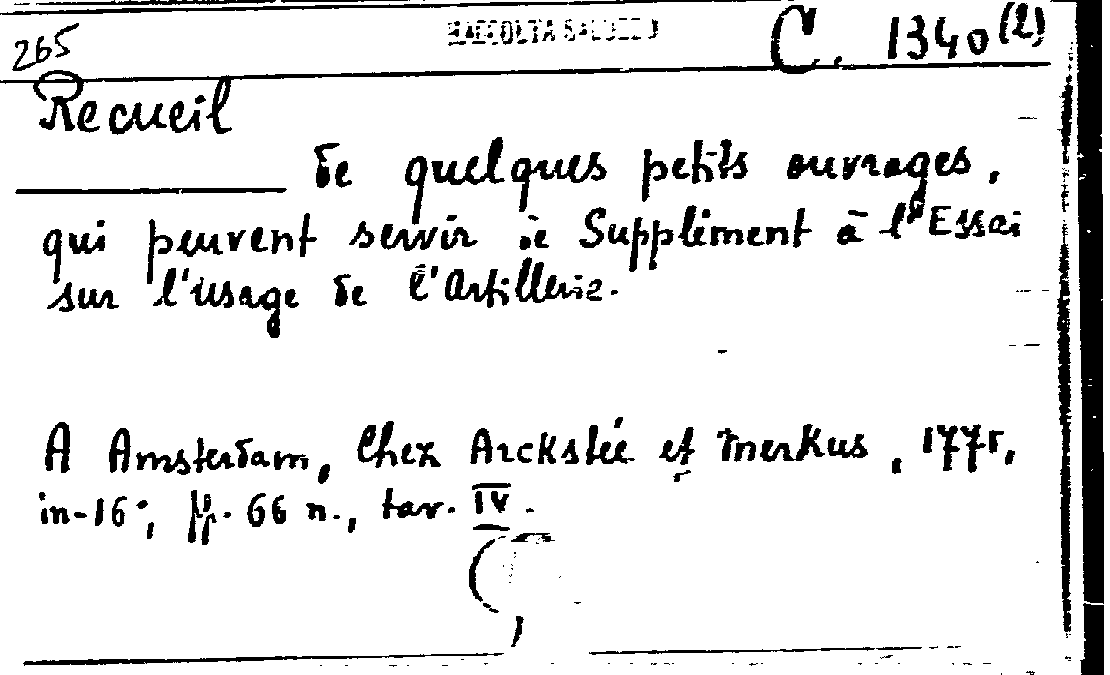 265 RACCOLTA SALUZZO C. 1340 (2)
Recueil
de quelques petits ouvrages,
qui peuvent servir de Supplément à l'Essai
sur l'usage de l'Artillerie.
A Amsterdam, Chez Arckstée et Merkus, 1771,
in-16°, pp. 66 n., tav. IV.